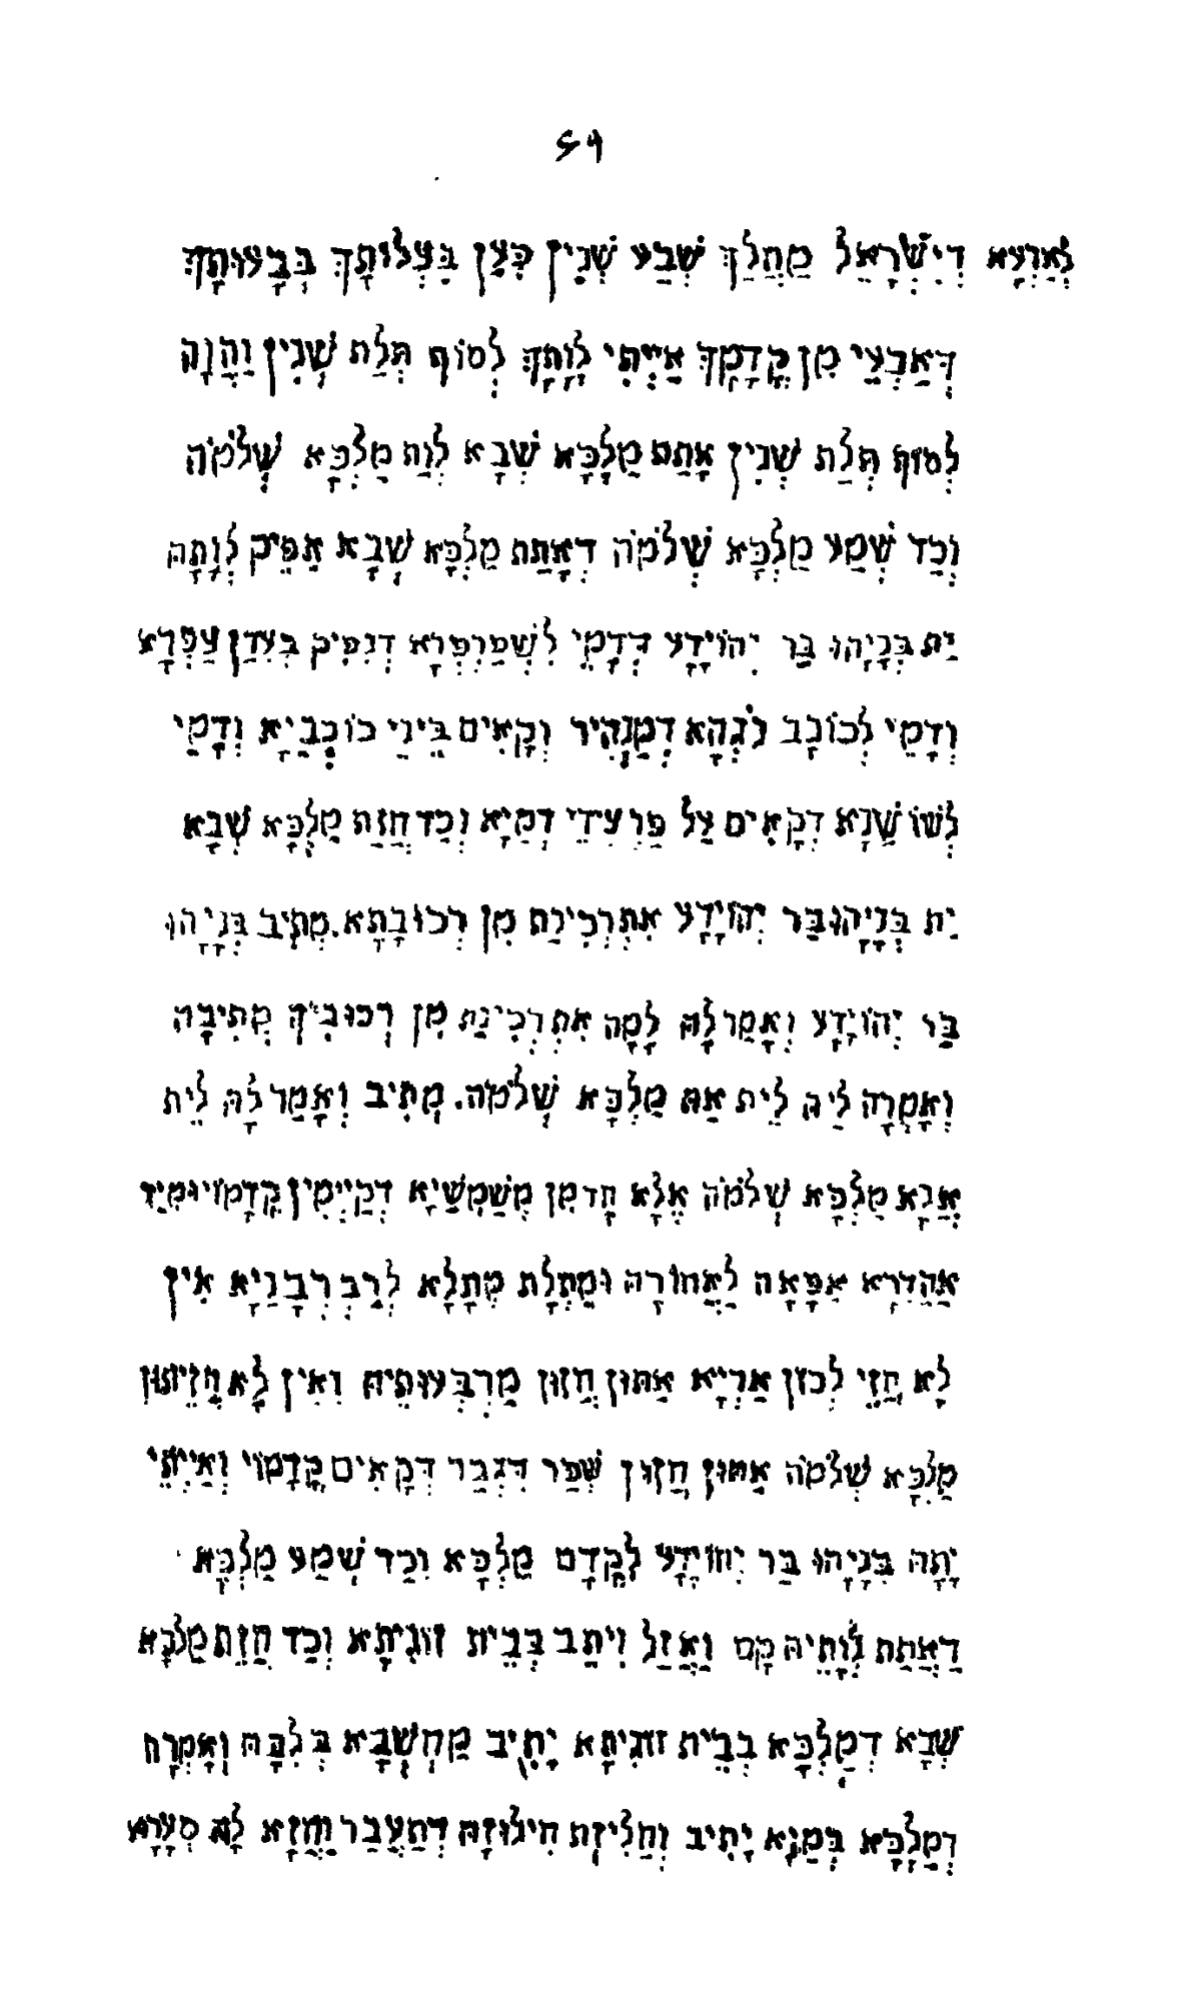 לְאַרְעָא דְיִשְׂרָאֵל מַהֲלַךְ שְׁבַע שְׁנִין כְּעַן בְּצְלוֹתָךְ בְּבָעוּתָךְ
דְּאַבְעֵי מִן קֳדָמָךְ אַיְיתִי לְוָתָךְ לְסוֹף תְּלַת שְׁנִין וַהֲוָה
לְסוֹף תְּלַת שְׁנִין אָתַת מַלְכָּא שְׁבָא לְוַת מַלְכָּא שְׁלֹמֹה
וְכַד שְׁמַע מַלְכָּא שְׁלֹמֹה דְאָתַת מַלְכָּא שְׁבָא אַפֵּיק לְוָתָהּ
יַת בְּנָיָהוּ בַּר יְהוֹיָדָע דְּדָמֵי לִשְׁפַרְפְּרָא דְנָפִיק בְּעִדַן צַפְרָא
וְדָמֵי לְכוֹכָב נֹגְהָא דְמַנְהִיר וְקָאִים בֵּינֵי כוֹכְבַיָא וְדָמֵי
לְשׁוֹשַׁנָא דְקָאִים עַל פַּרְצִידֵי דְמַיָא וְכַד חֲזַת מַלְכָּא שְׁבָא
יַת בְּנָיָהוּ בַּר יְהוֹיָדָע אִתְרְכִינַת מִן רְכוּבָתָא. מְתִיב בְּנָיָהוּ
בַּר יְהוֹיָדָע וְאָמַר לָהּ לָמָה אִתְרְכִינַת מִן רְכוּבִיךְ מְתִיבָה
וְאָמְרָה לֵיהּ לֵית אַתְּ מַלְכָּא שְׁלֹמֹה. מְתִיב וְאָמַר לָהּ לֵית
אֲנָא מַלְכָּא שְׁלֹמֹה אֶלָּא חַד מִן מְשַׁמְשַׁיָא דְקַיְימִין קֳדָמוֹי וּמִיַד
אַהֲדִרָא אַפָּאָה לַאֲחוֹרָהּ וּמַתְלָת מְתָלָא לְרַבְרְבָנַיָא אִין
לָא חֲזֵי לְכוֹן אַרְיָא אַתּוּן חֲזוּן מַרְבְּעוּתֵיהּ וְאִין לָא חֲזֵיתוּן
מַלְכָּא שְׁלֹמֹה אַתּוּן חֲזוּן שְׁפַר דִּגְבַר דְּקָאִים קֳדָמוֹי וְאַיְיתֵי
יָתָהּ בְּנָיָהוּ בַּר יְהוֹיָדָע לִקֳדָם מַלְכָּא וְכַד שְׁמַע מַלְכָּא
דַאֲתַת לְוָתֵיהּ קָם וַאֲזַל וִיתַב בְּבֵית זוּגִיתָא וְכַד חֲזַת מַלְכָּא
שְׁבָא דְמַלְכָּא בְּבֵית זוּגִיתָא יָתִיב מַחְשְׁבָא בְּלִבָּהּ וְאָמְרָה
דְמַלְכָּא בְּמַיָא יָתִיב וְחַלִיזַת חִילוּזָהּ דְתַעֲבַר וַחֲזָא לָהּ סְעָרָא